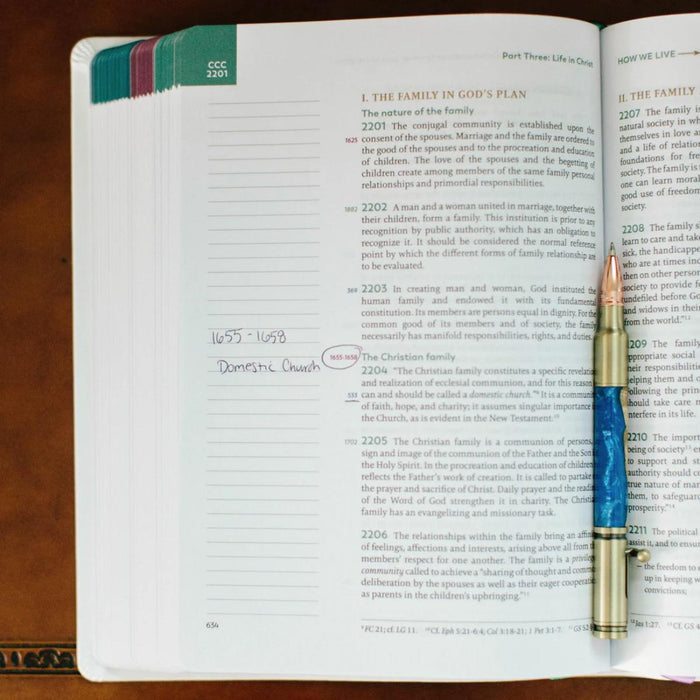 CCC
2201
Part Three: Life in Christ
I. THE FAMILY IN GOD'S PLAN
The nature of the family
2201 The conjugal community is established upon the
1625 consent of the spouses. Marriage and the family are ordered to
the good of the spouses and to the procreation and education
of children. The love of the spouses and the begetting of
children create among members of the same family personal
relationships and primordial responsibilities.
1882 2202 A man and a woman united in marriage, together with
their children, form a family. This institution is prior to any
recognition by public authority, which has an obligation to
recognize it. It should be considered the normal reference
point by which the different forms of family relationship are
to be evaluated.
369 2203 In creating man and woman, God instituted the
human family and endowed it with its fundamental
constitution. Its members are persons equal in dignity. For the
common good of its members and of society, the family
necessarily has manifold responsibilities, rights, and duties.
1655-1658
Domestic Church
1655-1658 The Christian family
2204 "The Christian family constitutes a specific revelation
and realization of ecclesial communion, and for this reason
533 can and should be called a domestic church."⁹ It is a
of faith, hope, and charity; it assumes singular importance
the Church, as is evident in the New Testament.¹⁰
1702 2205 The Christian family is a communion of persons,
sign and image of the communion of the Father and the Son
the Holy Spirit. In the procreation and education of children
reflects the Father's work of creation. It is called to partake
the prayer and sacrifice of Christ. Daily prayer and the
of the Word of God strengthen it in charity. The
family has an evangelizing and missionary task.
2206 The relationships within the family bring an
of feelings, affections and interests, arising above all from
members' respect for one another. The family is a
community called to achieve a "sharing of thought and
deliberation by the spouses as well as their eager
as parents in the children's upbringing."¹¹
634
⁹ FC 21; cf. LG 11. ¹⁰ Cf. Eph 5:21-6:4; Col 3:18-21; 1 Pet 3:1-7. ¹¹ GS
HOW WE LIVE
II. THE FAMILY
2207 The family is
natural society in
themselves in love
and a life of
foundations for
society. The family is
one can learn moral
good use of freedom
society.
2208 The family
learn to care and
sick, the
who are at times
then on other
society to provide
undefiled before
and widows in their
from the world."¹²
2209 The family
appropriate social
their responsibilities
helping them and
following the
should take care
interfere in its life.
2210 The
being of society¹³
to support and
authority should
true nature of
them, to safeguard
prosperity."¹⁴
2211 The political
assist it, and to
the freedom to
up in keeping
convictions;
¹² Jas 1:27. ¹³ Cf. GS